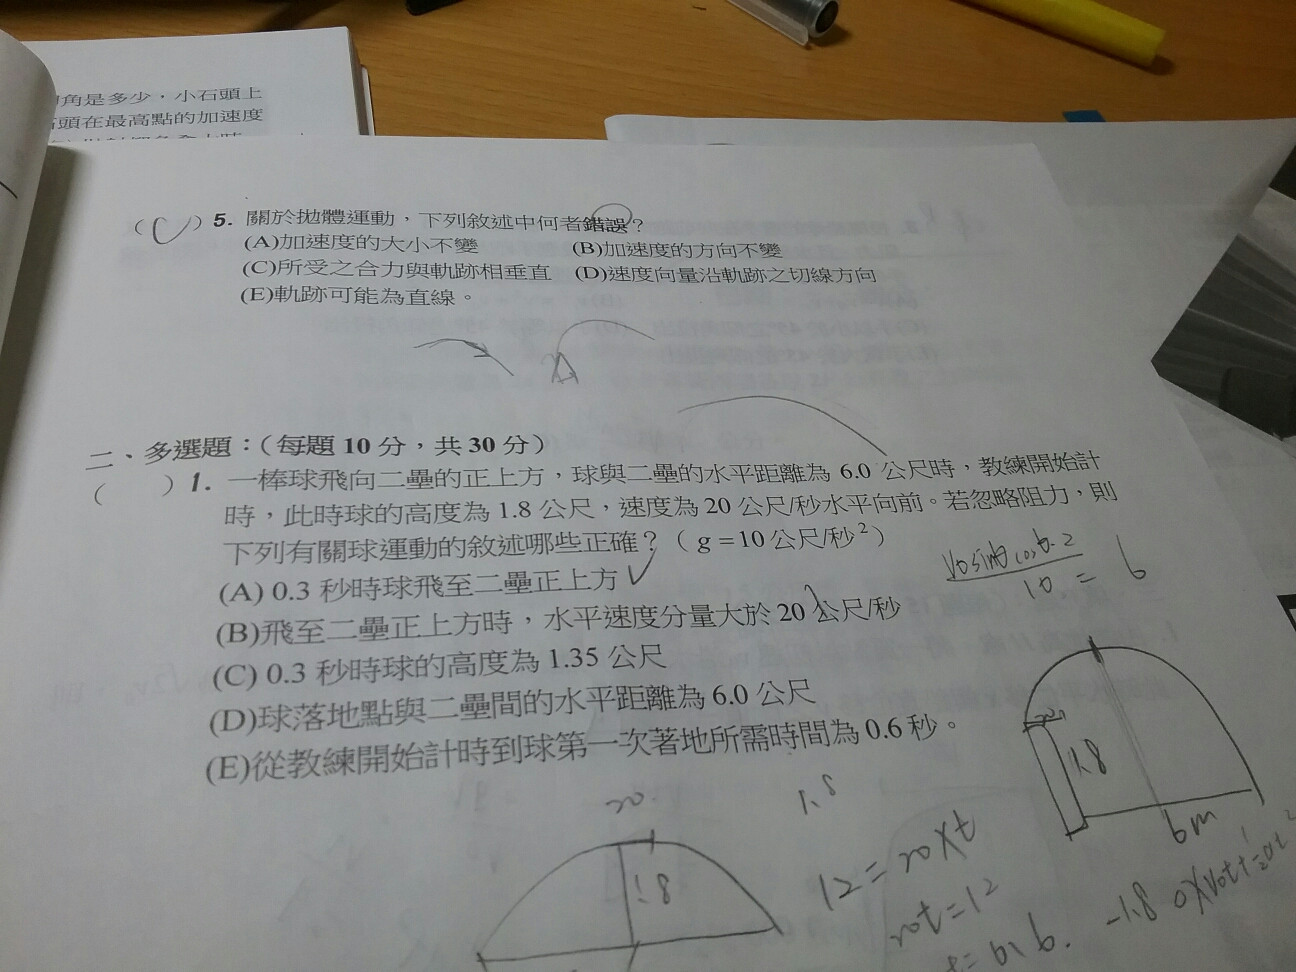 角是多少，小石頭上
頭在最高點的加速度
(C)5. 關於拋體運動，下列敘述中何者錯誤？
(A)加速度的大小不變 (B)加速度的方向不變
(C)所受之合力與軌跡相垂直 (D)速度向量沿軌跡之切線方向
(E)軌跡可能為直線。
二、多選題：（每題10分，共30分）
( )1. 一棒球飛向二壘的正上方，球與二壘的水平距離為 6.0 公尺時，教練開始計
時，此時球的高度為 1.8 公尺，速度為 20 公尺/秒水平向前。若忽略阻力，則
下列有關球運動的敘述哪些正確？（ g =10 公尺/秒² ）
(A) 0.3 秒時球飛至二壘正上方
(B)飛至二壘正上方時，水平速度分量大於 20 公尺/秒
(C) 0.3 秒時球的高度為 1.35 公尺
(D)球落地點與二壘間的水平距離為 6.0 公尺
(E)從教練開始計時到球第一次著地所需時間為 0.6 秒。
10 = 6
1.8
6m
20
1.8
1.8
12=20×t
20t=12
-1.8